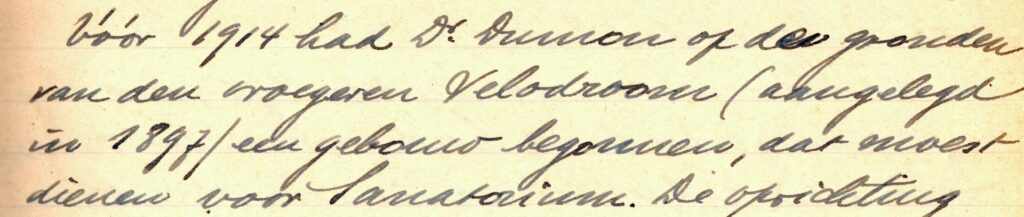 Vóór 1914 had Dr. Dumon op den gronden
van den vroegeren Velodroom (aangelegd
in 1897) een gebouw begonnen, dat moest
dienen voor Sanatorium. De oprichting